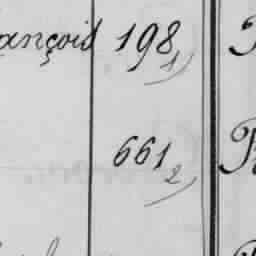 ançois 198 1)
661 2)